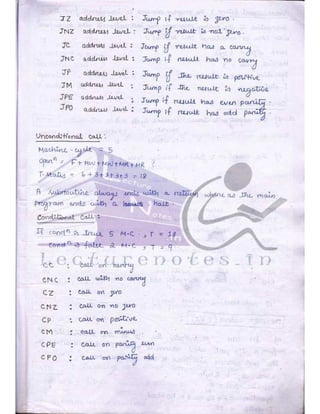 JZ address level : Jump if result is zero.
JNZ address level : Jump if result is not zero.
JC address level : Jump if result has a carry
JNC address level : Jump if result has no carry
JP address level : Jump if the result is positive
JM address level : Jump if the result is negative
JPE address level : Jump if result has even parity.
JPO address level : Jump if result has odd parity.
Unconditional call :
Machine-cycle = 5
opnⁿ = F + MW + MW + MR + MR
T-States = 6+3+3+3+3 = 18
A subroutine always ends with a return where as the main
program ends with a halt
Conditional call :
If condⁿ is true 5 M-C , T = 18
condⁿ is false 2 M-C , T = 9
Lecturenotes.in
CC : call on carry
CNC : call with no carry
CZ : call on zero
CNZ : call on no zero
CP : call on positive
CM : call on minus
CPE : call on parity even
CPO : call on parity odd